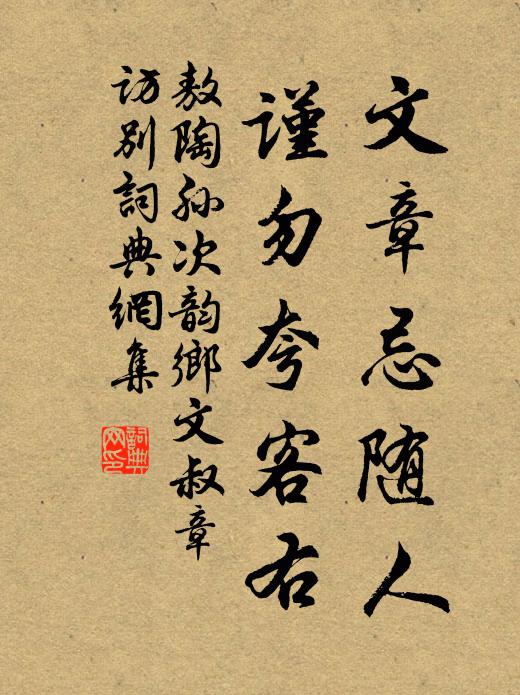 文章忌随人
谨勿夸客右
敖陶孙次韵鄉文叔章
访别詞典網集
詞典
网印